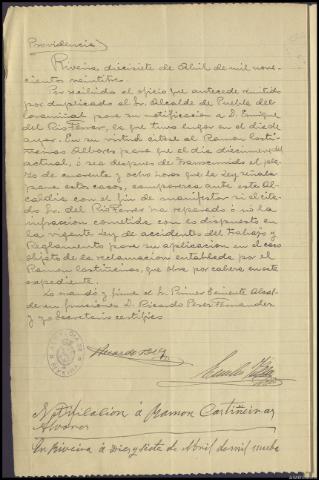 Providencia)
Riveira diecisiete de Abril de mil nove-
cientos veintitres
Por recibido el oficio que antecede remitido
por duplicado al Sr. Alcalde de Puebla del
Caramiñal para su notificacion a D. Enrique
del Rio Ferrer, la que tuvo lugar en el dia de
ayer. En su virtud citese al Ramon Casti-
ñeiras Alvores para que el dia diecinueve del
actual, ó sea despues de transcurrido el pla-
zo de cuarenta y ocho horas que la ley señala
para estos casos, comparezca ante esta Al-
caldia con el fin de manifestar si el cita-
do Sr. del Rio Ferrer ha reparado ó nó la
infraccion cometida con lo dispuesto en
la vigente Ley de accidentes del Trabajo y
Reglamento para su aplicacion en el caso
objeto de la reclamacion entablada por el
Ramon Castiñeiras, que obra por cabeza en este
expediente.
Lo mandó y firma el Sr. Primer Teniente Alcal-
de en funciones D. Ricardo Perez Fernandez
y yo Secretario certifico
Ricardo Perez
Notificacion á Ramon Castiñeiras
Alvores
En Riveira á diez y siete de Abril de mil nueve